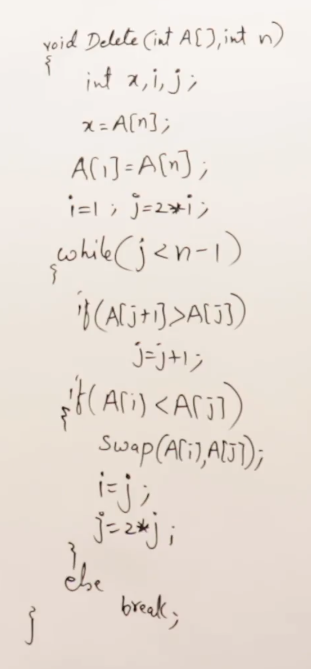 void Delete(int A[],int n)
{
int x,i,j;
x=A[n];
A[1]=A[n];
i=1; j=2*i;
while(j<n-1)
{
if(A[j+1]>A[j])
j=j+1;
if(A[i]<A[j])
{
Swap(A[i],A[j]);
i=j;
j=2*j;
}
else
break;
}